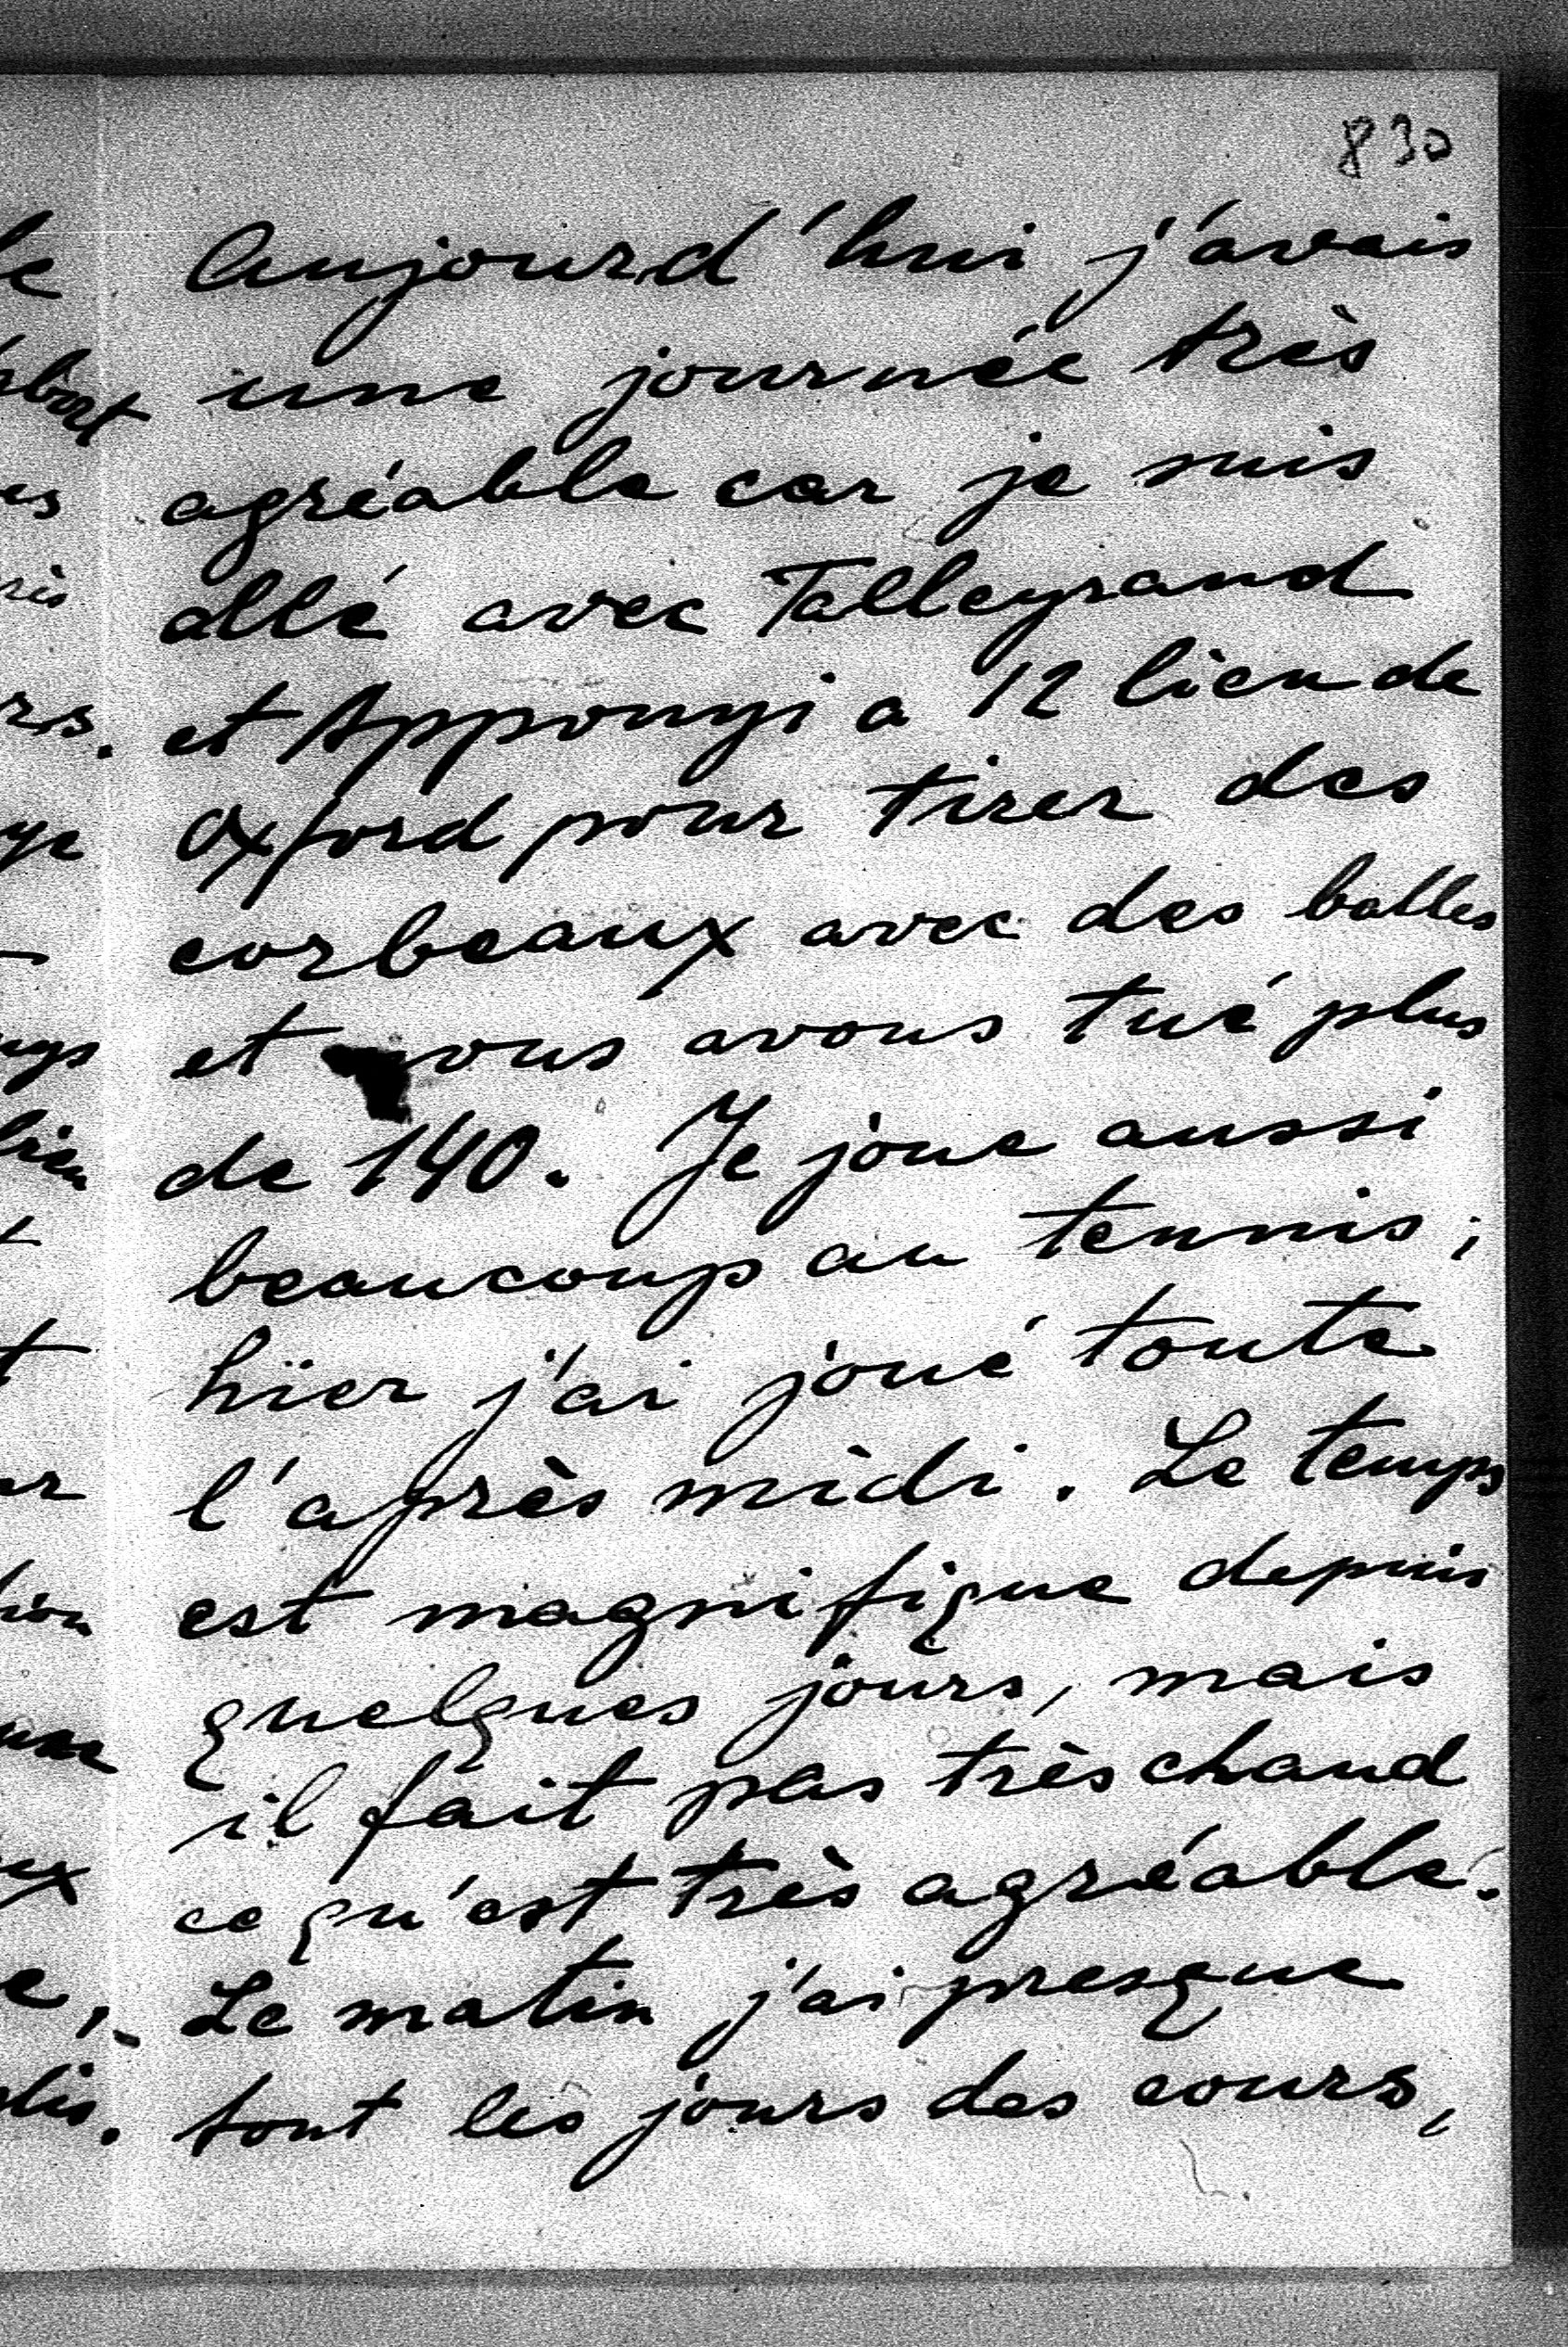 830
Aujourd'hui j'avais
une journée très
agréable car je suis
allé avec Talleyrand
et Apponyi a 12 lieu de
Oxford pour tirer des
corbeaux avec des balles
et nous avons tué plus
de 140. Je joue aussi
beaucoup au tennis;
hier j'ai joué toute
l'après midi. Le temps
est magnifique depuis
quelques jours, mais
il fait pas très chaud
ce qu'est très agréable.
Le matin j'ai presque
tout les jours des cours,